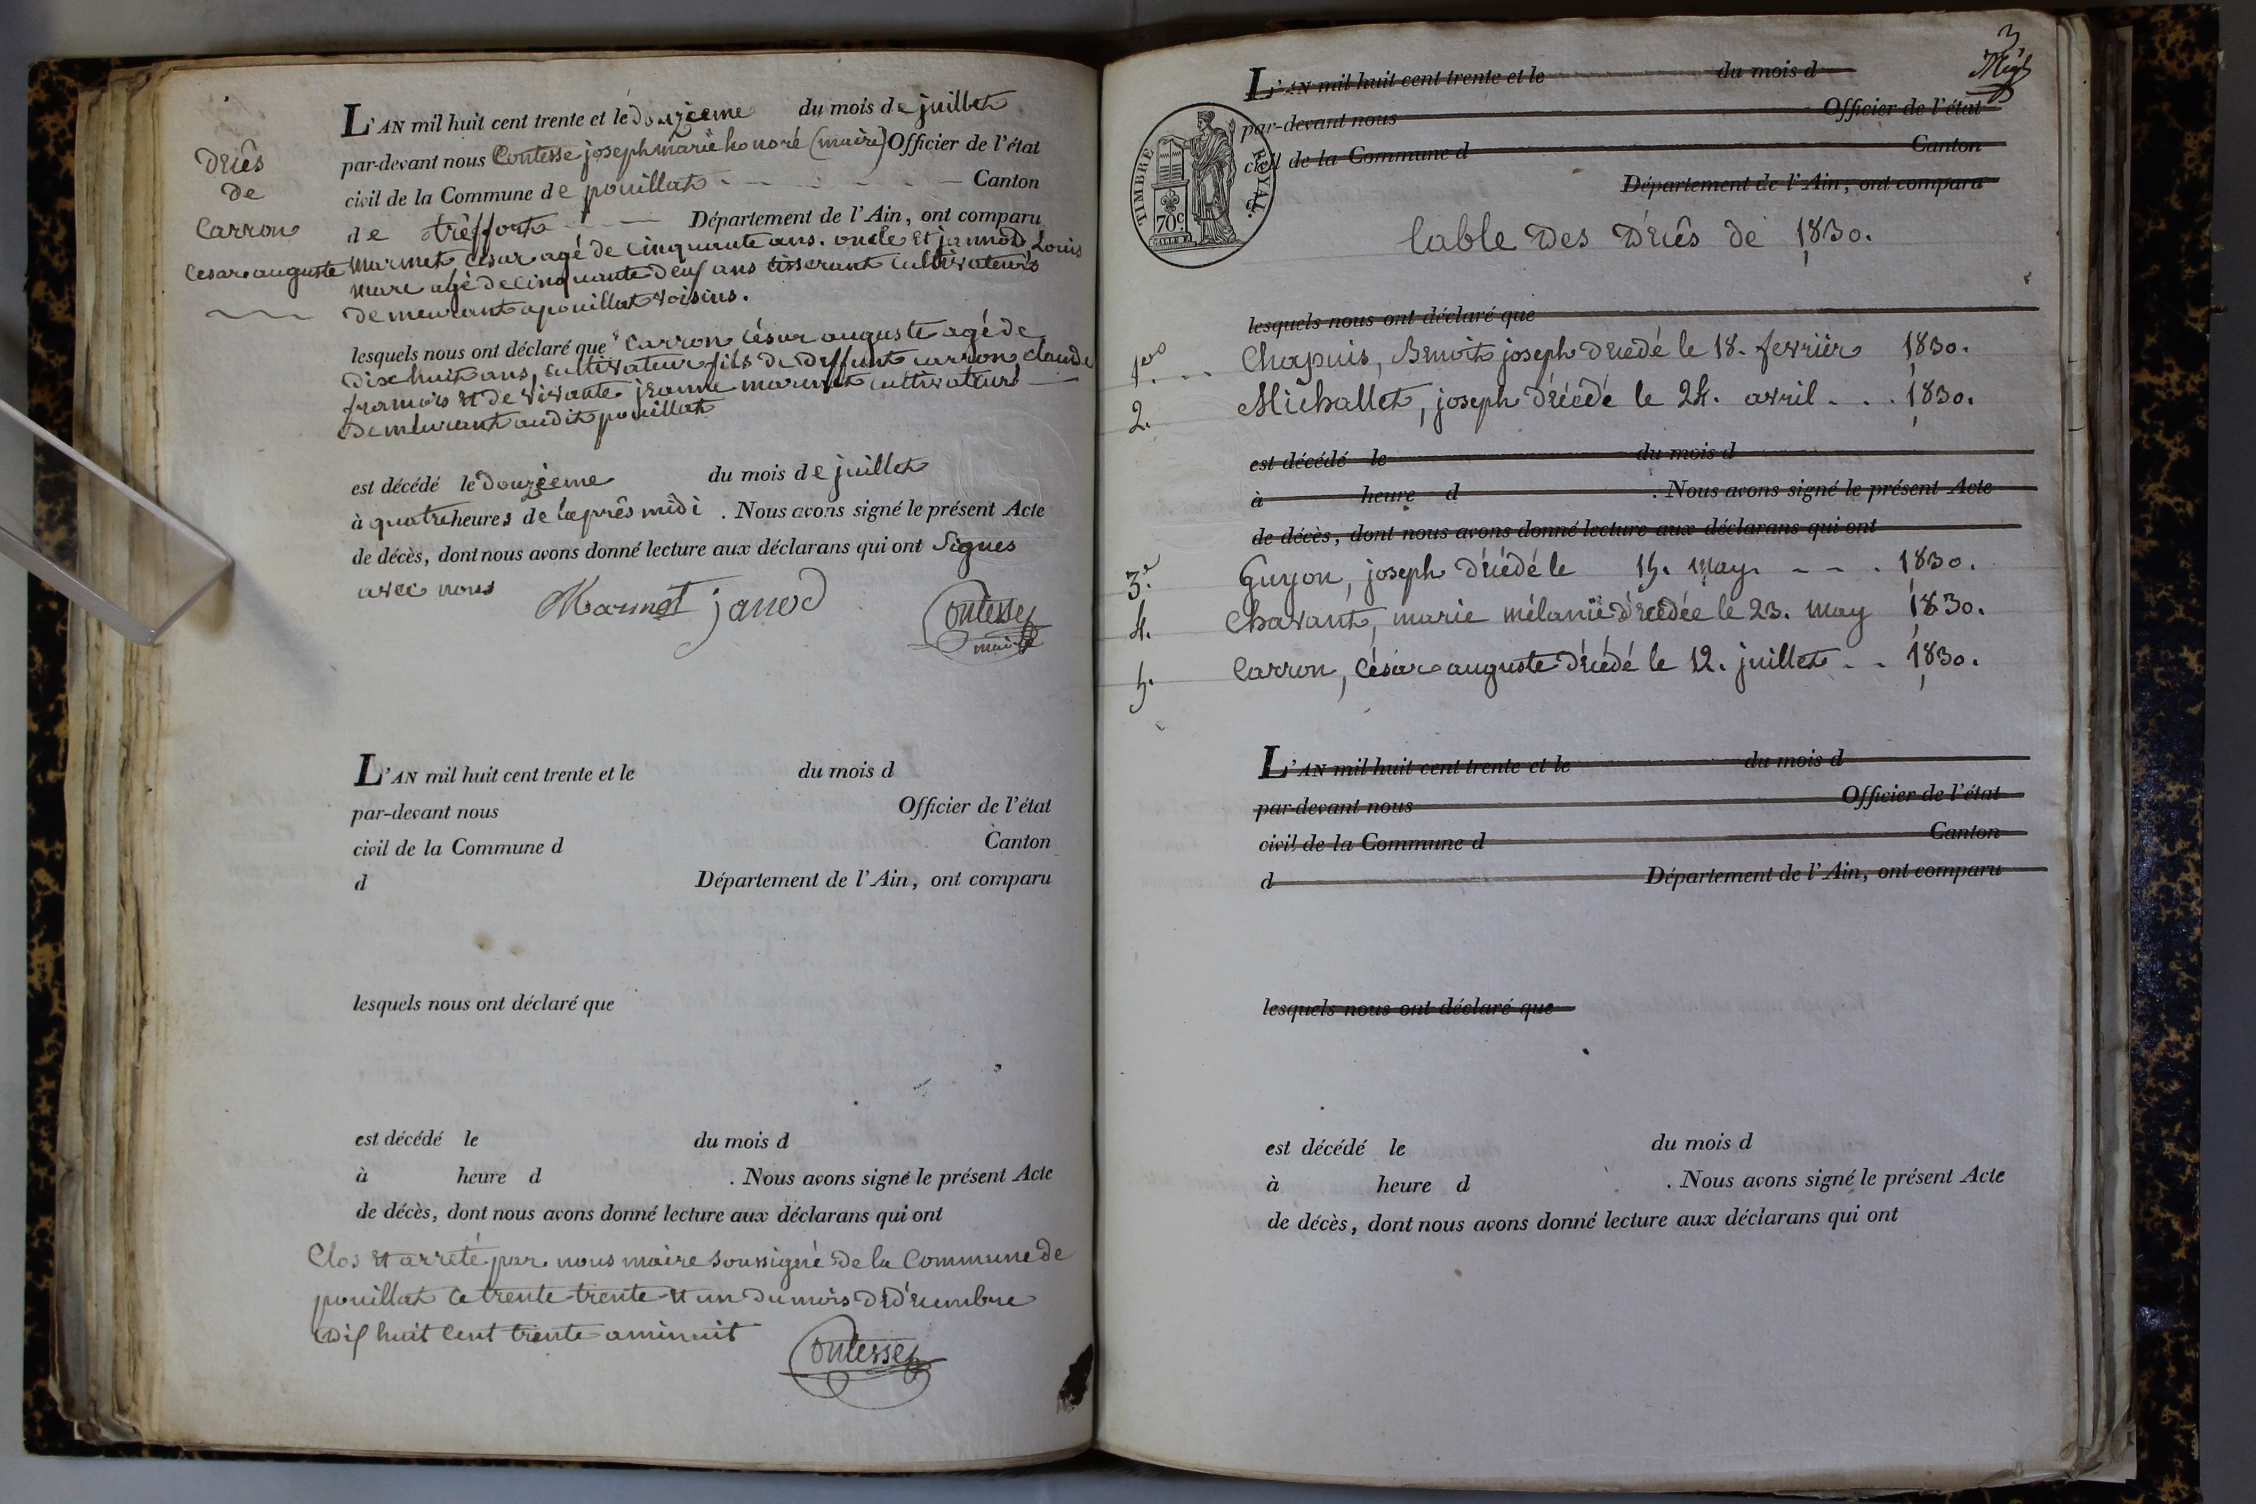 Décês
de
Carron
Cesar auguste
L'AN mil huit cent trente et le douzieme du mois de juillet
par-devant nous Contesse joseph marie honoré (maire) Officier de l'état
civil de la Commune de pouillat Canton
de trêffort Département de l'Ain, ont comparu
Marmet César agé de cinquante ans. oncle et jannod Louis
marc agé de cinquante deux ans tisserant cultivateurs
demeurant apouillat voisins.
lesquels nous ont déclaré que Carron césar auguste agé de
dix huit ans, cultivateur fils de deffunt carron claude
françois et de vivante jeanne marmet cultivateurs
demeurant audit pouillat
est décédé le douzieme du mois de juillet
à quatre heures de l'aprês midi . Nous avons signé le présent Acte
de décès, dont nous avons donné lecture aux déclarans qui ont Signes
avec nous
Marmet janod Contesse
maire
L'AN mil huit cent trente et le du mois d
par-devant nous Officier de l'état
civil de la Commune d Canton
d Département de l'Ain, ont comparu
lesquels nous ont déclaré que
est décédé le du mois d
à heure d . Nous avons signé le présent Acte
de décès, dont nous avons donné lecture aux déclarans qui ont
Clos et arreté par nous maire soussigné de la Commune de
pouillat ce trente trente et un du mois de décembre
dix huit cent trente aminuit
Contesse
3
L'AN mil huit cent trente et le du mois d
par-devant nous Officier de l'état
civil de la Commune d Canton
Département de l'Ain, ont comparu
TIMBRE ROYAL.
70 c.
table des Décês de 1830.
lesquels nous ont déclaré que
1er Chapuis, Benoit joseph décédé le 18. fevrier 1830.
2. Michallet, joseph décédé le 24. avril . . . 1830.
est décédé le du mois d
à heure d . Nous avons signé le présent Acte
de décès, dont nous avons donné lecture aux déclarans qui ont
3.e Guyon, joseph décédé le 15. may. - - . 1830.
4. Chavant, marie mélanie décédée le 23. may 1830.
5. Carron, César auguste décédé le 12. juillet - - 1830.
L'AN mil huit cent trente et le du mois d
par-devant nous Officier de l'état
civil de la Commune d Canton
d Département de l'Ain, ont comparu
lesquels nous ont déclaré que
est décédé le du mois d
à heure d . Nous avons signé le présent Acte
de décès, dont nous avons donné lecture aux déclarans qui ont